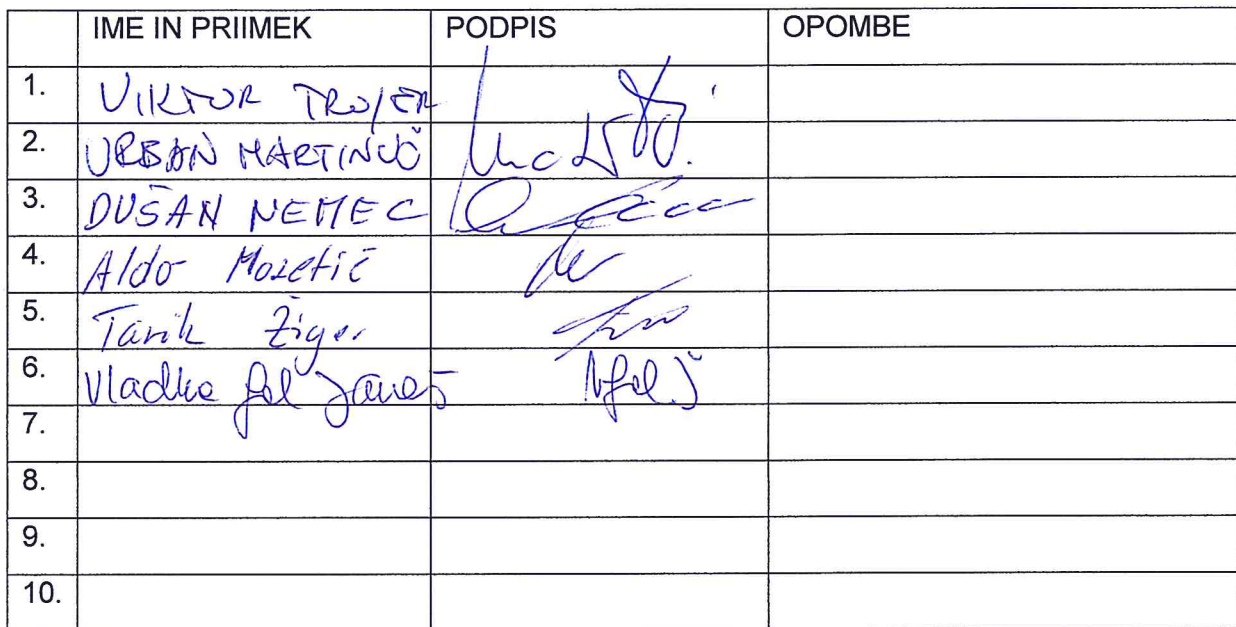 IME IN PRIIMEK PODPIS OPOMBE
1. VIKTOR TROJER
2. URBAN MARTINUČ
3. DUŠAN NEMEC
4. Aldo Mozetič
5. Tarik Žigon
6. Vladka Gal Janeš
7.
8.
9.
10.